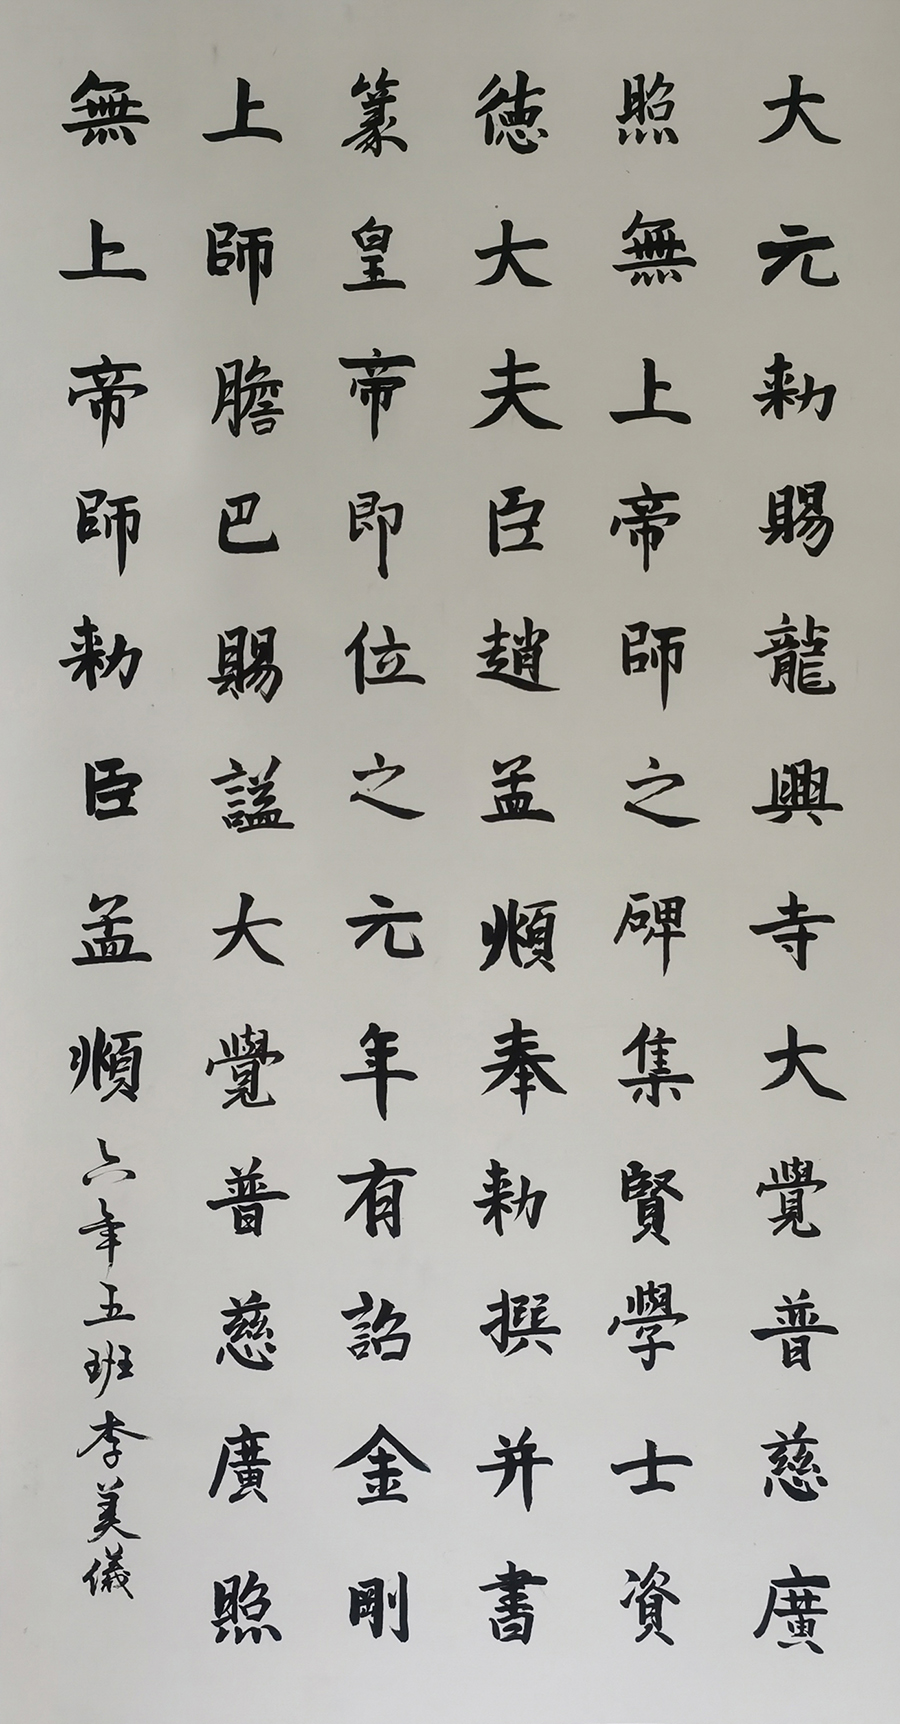 大元勑賜龍興寺大覺普慈廣
照無上帝師之碑集賢學士資
徳大夫臣趙孟順奉勑撰并書
篆皇帝即位之元年有詔金剛
上師膽巴賜謚大覺普慈廣照
無上帝師勑臣孟順六年五班李美儀